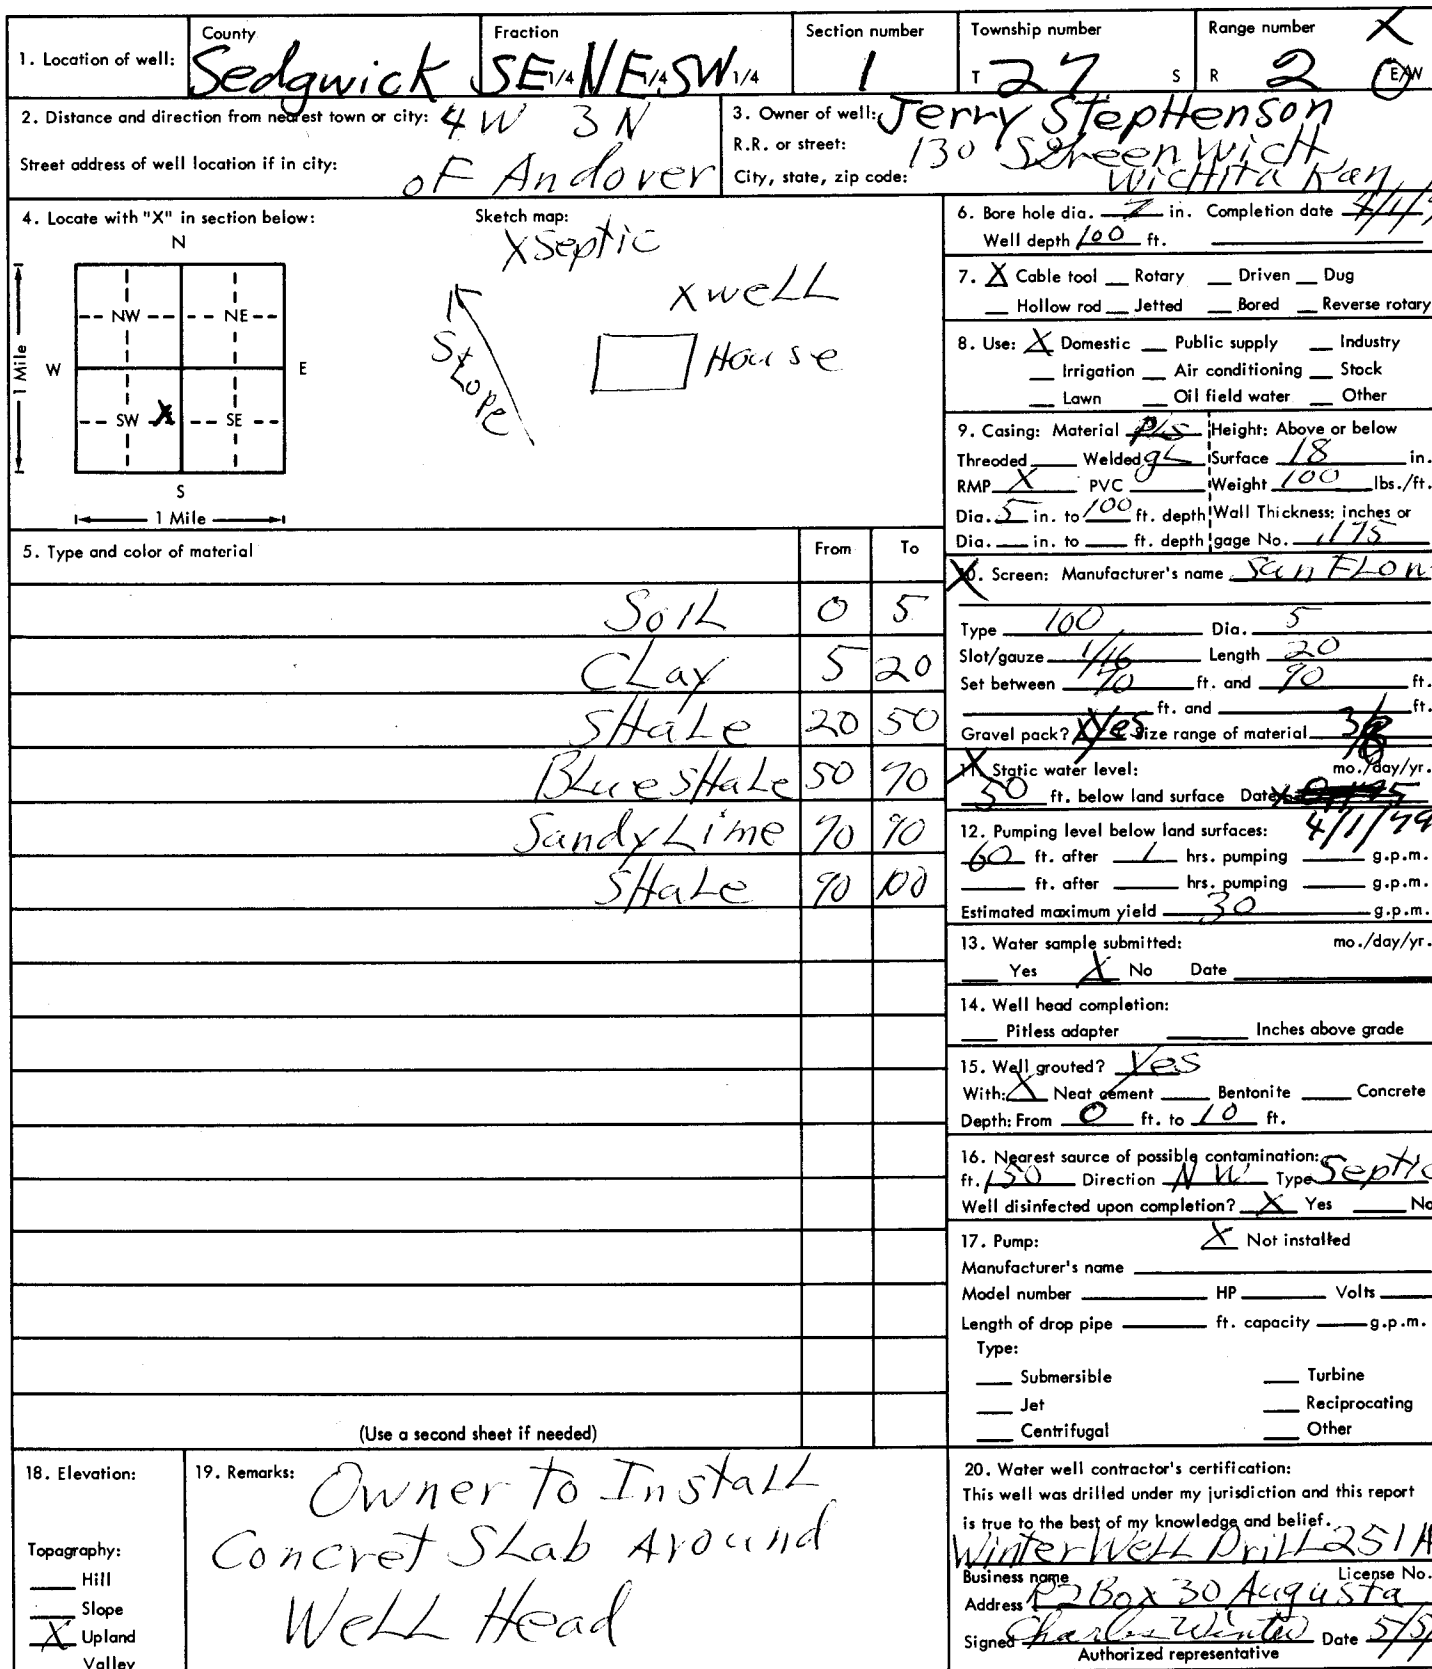 1. Location of well: County Sedgwick Fraction SE 1/4 NE 1/4 SW 1/4 Section number 1 Township number T 27 S Range number R 2 E/W X
2. Distance and direction from nearest town or city: 4W 3N
of Andover
Street address of well location if in city:
3. Owner of well: Jerry StepHenson
R.R. or street: 130 Greenwich
City, state, zip code: Wichita Kan
4. Locate with "X" in section below:
N
NW NE
W E
SW X SE
S
1 Mile
1 Mile
Sketch map:
X Septic
X weLL
House
SLope
5. Type and color of material From To
SoiL 0 5
CLay 5 20
SHaLe 20 50
BLue sHaLe 50 70
Sandy Lime 70 90
SHaLe 90 100
(Use a second sheet if needed)
6. Bore hole dia. 7 in. Completion date 4/1/
Well depth 100 ft.
7. X Cable tool Rotary Driven Dug
Hollow rod Jetted Bored Reverse rotary
8. Use: X Domestic Public supply Industry
Irrigation Air conditioning Stock
Lawn Oil field water Other
9. Casing: Material PLS Height: Above or below
Threaded Welded gL Surface 18 in.
RMP X PVC Weight 100 lbs./ft.
Dia. 5 in. to 100 ft. depth Wall Thickness: inches or
Dia. in. to ft. depth gage No. .175
10. Screen: Manufacturer's name
Type 100 Dia. 5
Slot/gauze 1/16 Length 20
Set between 70 ft. and 90 ft.
ft. and ft.
Gravel pack? Yes Size range of material
11. Static water level: mo./day/yr.
50 ft. below land surface Date 4/1/79
12. Pumping level below land surfaces:
60 ft. after 1 hrs. pumping g.p.m.
ft. after hrs. pumping g.p.m.
Estimated maximum yield 30 g.p.m.
13. Water sample submitted: mo./day/yr.
Yes X No Date
14. Well head completion:
Pitless adapter Inches above grade
15. Well grouted? Yes
With: X Neat cement Bentonite Concrete
Depth: From 0 ft. to 10 ft.
16. Nearest source of possible contamination:
ft. 150 Direction NW Type Septic
Well disinfected upon completion? X Yes No
17. Pump: X Not installed
Manufacturer's name
Model number HP Volts
Length of drop pipe ft. capacity g.p.m.
Type:
Submersible Turbine
Jet Reciprocating
Centrifugal Other
18. Elevation:
Topagraphy:
Hill
Slope
X Upland
Valley
19. Remarks: Owner to InstaLL
Concret SLab Around
WeLL Head
20. Water well contractor's certification:
This well was drilled under my jurisdiction and this report
is true to the best of my knowledge and belief.
Winter WeLL DriLL 251A
Business name License No.
Address Box 30 Augusta
Signed Charles Winter Date 5/5/
Authorized representative